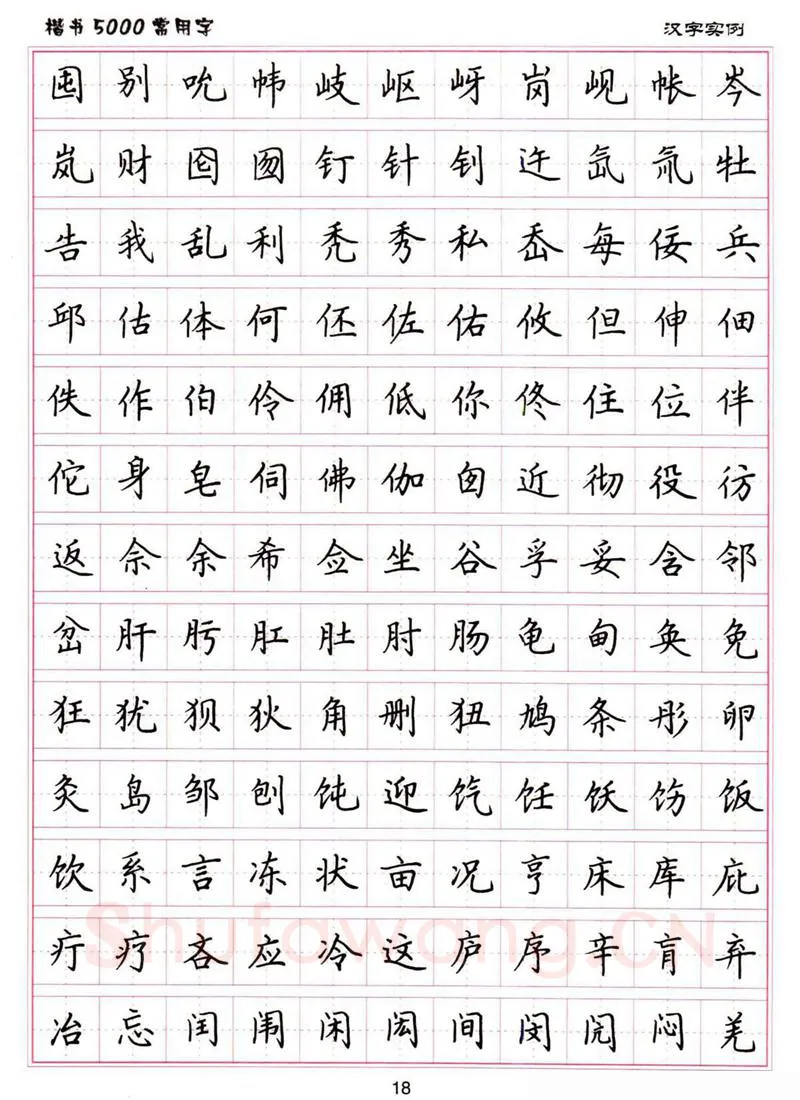 楷书5000常用字 汉字实例
囤 别 吮 帏 岐 岖 岈 岗 岘 帐 岑
岚 财 囵 囫 钉 针 钊 迕 氙 氚 牡
告 我 乱 利 秃 秀 私 岙 每 佞 兵
邱 估 体 何 伾 佐 佑 攸 但 伸 佃
佚 作 伯 伶 佣 低 你 佟 住 位 伴
佗 身 皂 伺 佛 伽 囱 近 彻 役 彷
返 佘 余 希 佥 坐 谷 孚 妥 含 邻
岔 肝 肟 肛 肚 肘 肠 龟 甸 奂 免
狂 犹 狈 狄 角 删 狃 鸠 条 彤 卵
灸 岛 邹 刨 饨 迎 饩 饪 饫 饬 饭
饮 系 言 冻 状 亩 况 亨 床 库 庇
Shufawang.CN
疔 疗 吝 应 冷 这 庐 序 辛 肓 弃
冶 忘 闰 闱 闲 闳 间 闵 闶 闷 羌
18